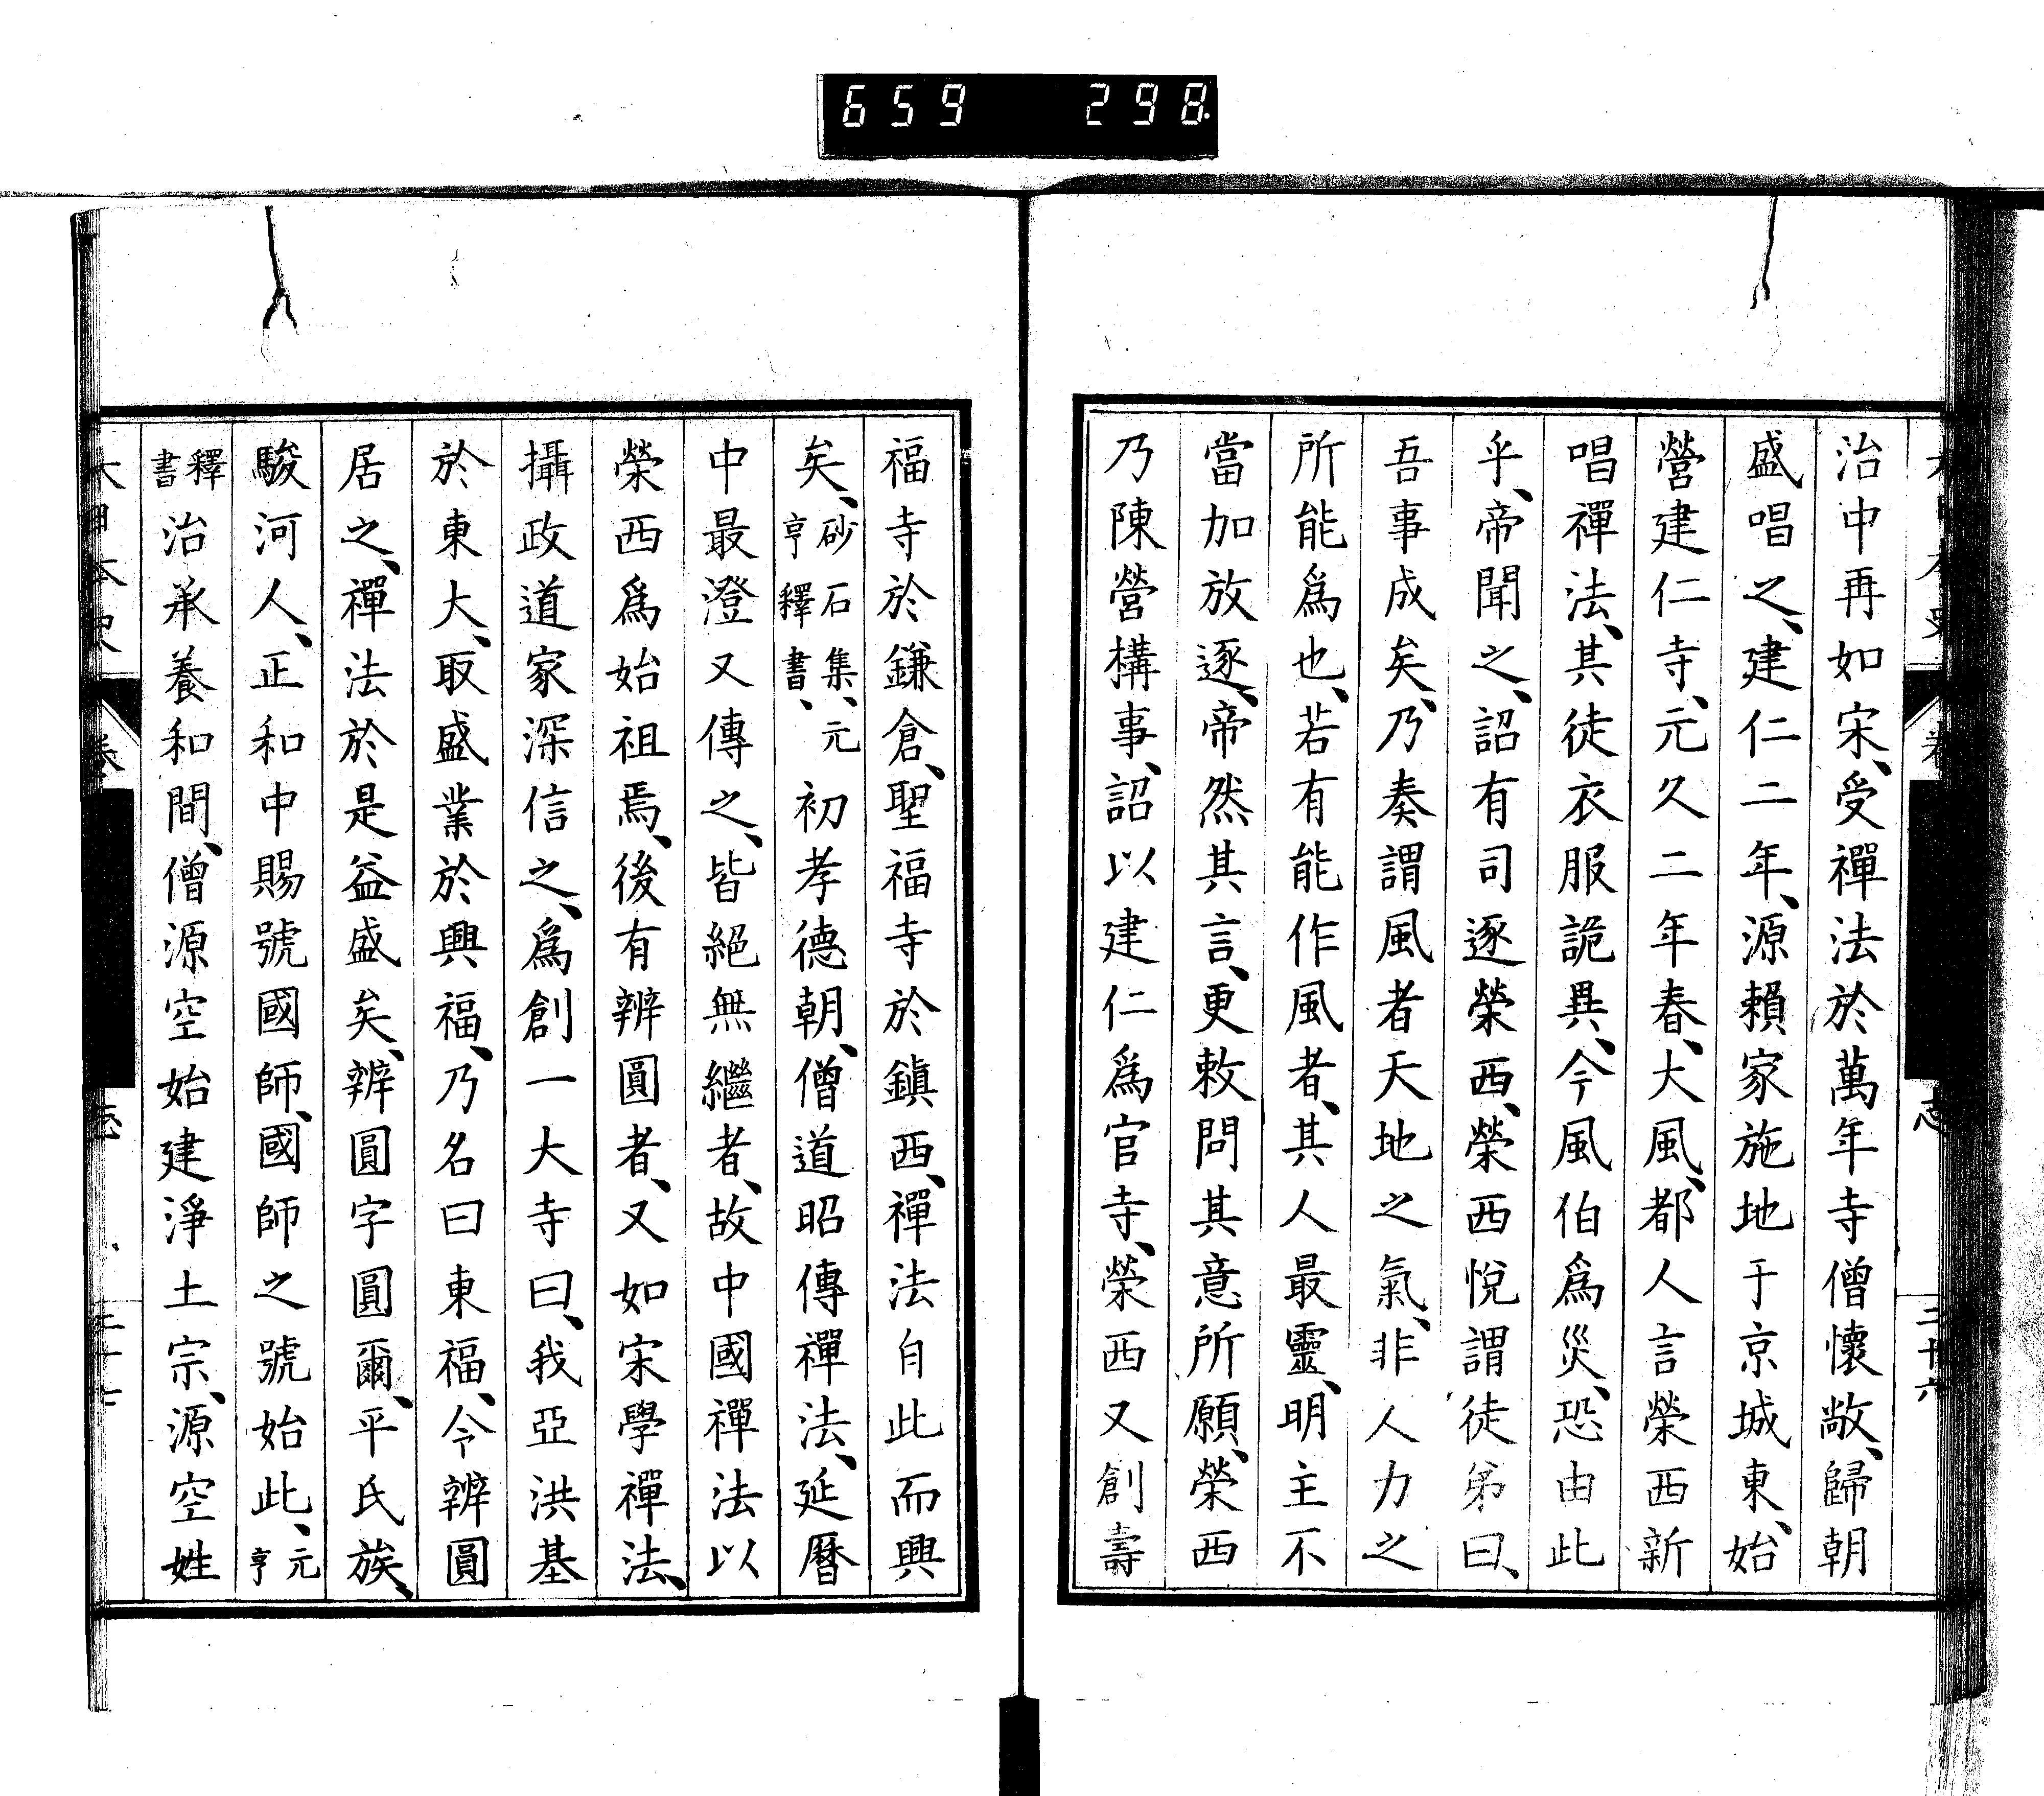 659 298
治中再如宋、受禪法於萬年寺僧懷敞、歸朝
盛唱之、建仁二年、源賴家施地于京城東、始
營建仁寺、元久二年春、大風、都人言榮西新
唱禪法、其徒衣服詭異、今風伯爲災、恐由此
乎、帝聞之、詔有司逐榮西、榮西悅謂徒弟曰、
吾事成矣、乃奏謂風者天地之氣、非人力之
所能爲也、若有能作風者、其人最靈、明主不
當加放逐、帝然其言、更敕問其意所願、榮西
乃陳營構事、詔以建仁爲官寺、榮西又創壽
福寺於鎌倉、聖福寺於鎭西、禪法自此而興
矣、砂石集、元亨釋書、初孝德朝、僧道昭傳禪法、延曆
中最澄又傳之、皆絕無繼者、故中國禪法以
榮西爲始祖焉、後有辨圓者、又如宋學禪法、
攝政道家深信之、爲創一大寺曰、我亞洪基
於東大、取盛業於興福、乃名曰東福、令辨圓
居之、禪法於是益盛矣、辨圓字圓爾、平氏族、
駿河人、正和中賜號國師、國師之號始此、元亨
釋書治承養和間、僧源空始建淨土宗、源空姓